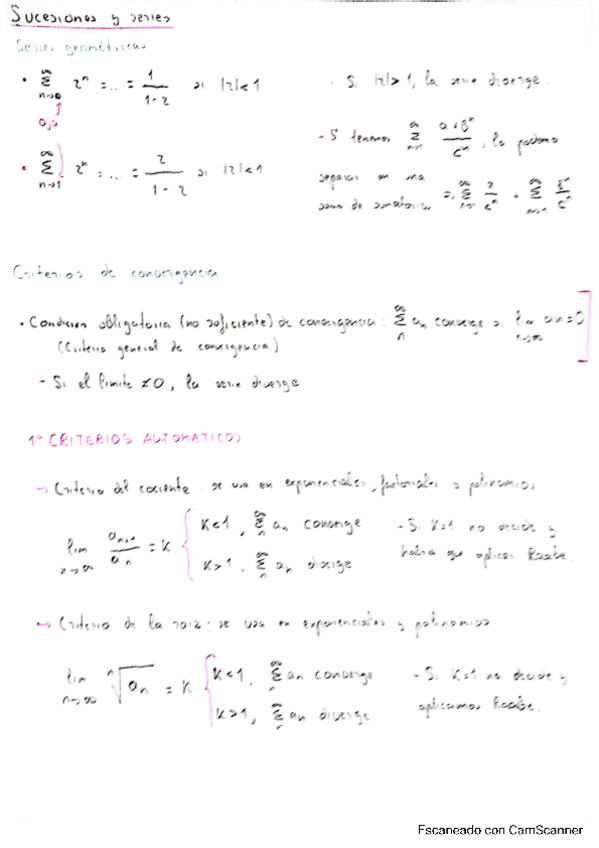 Sucesiones y series
Series geométricas
• ∞ Σ n→0 zⁿ = ... = 1/(1-z) si |z|<1
- Si |z|>1, la serie diverge.
• ∞ Σ n→1 zⁿ = ... = z/(1-z) si |z|<1
- Si tenemos ∞ Σ n→1 (a+bⁿ)/cⁿ, lo podemos
separar en una
suma de sumatorios
Criterios de convergencia
• Condición obligatoria (no suficiente) de convergencia: ∞ Σ n an converge si lim n→∞ an=0
(Criterio general de convergencia)
- Si el límite ≠0, la serie diverge
1º CRITERIOS AUTOMATICOS
→ Criterio del cociente: se usa en exponenciales, factoriales o polinomios
lim n→∞ an+1/an = K { K<1, ∞ Σ n an converge
K>1, ∞ Σ n an diverge
- Si K=1 no decide y
habría que aplicar Raabe.
→ Criterio de la raiz: se usa en exponenciales y polinomios
lim n→∞ ⁿ√an = K { K<1, ∞ Σ n an converge
K>1, ∞ Σ n an diverge
- Si K=1 no decide y
aplicamos Raabe.
Escaneado con CamScanner